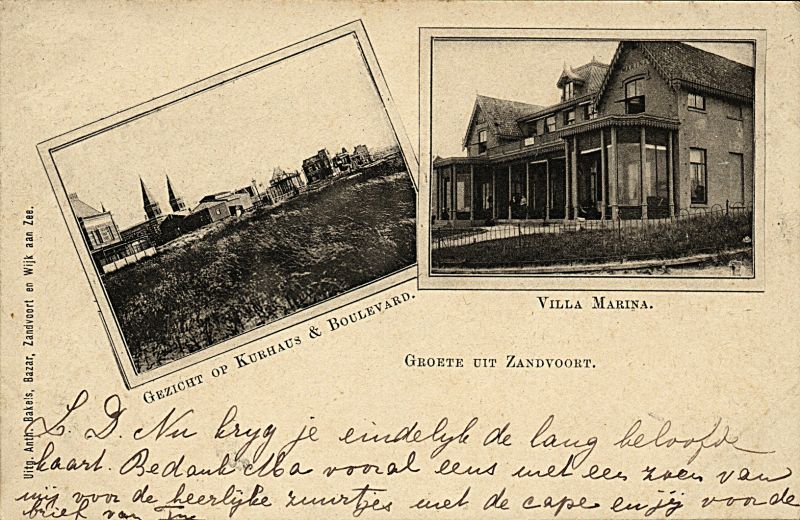 Gezicht op Kurhaus & Boulevard.
Villa Marina.
Groete uit Zandvoort.
Uitg. Anth. Bakels, Bazar, Zandvoort en Wijk aan Zee.
L. D. Nu kryg je eindelyk de lang beloofde
kaart. Bedank Ma vooral eens met een zoen van
mij voor de heerlijke zuurtjes met de cape en jij voor de
brief van